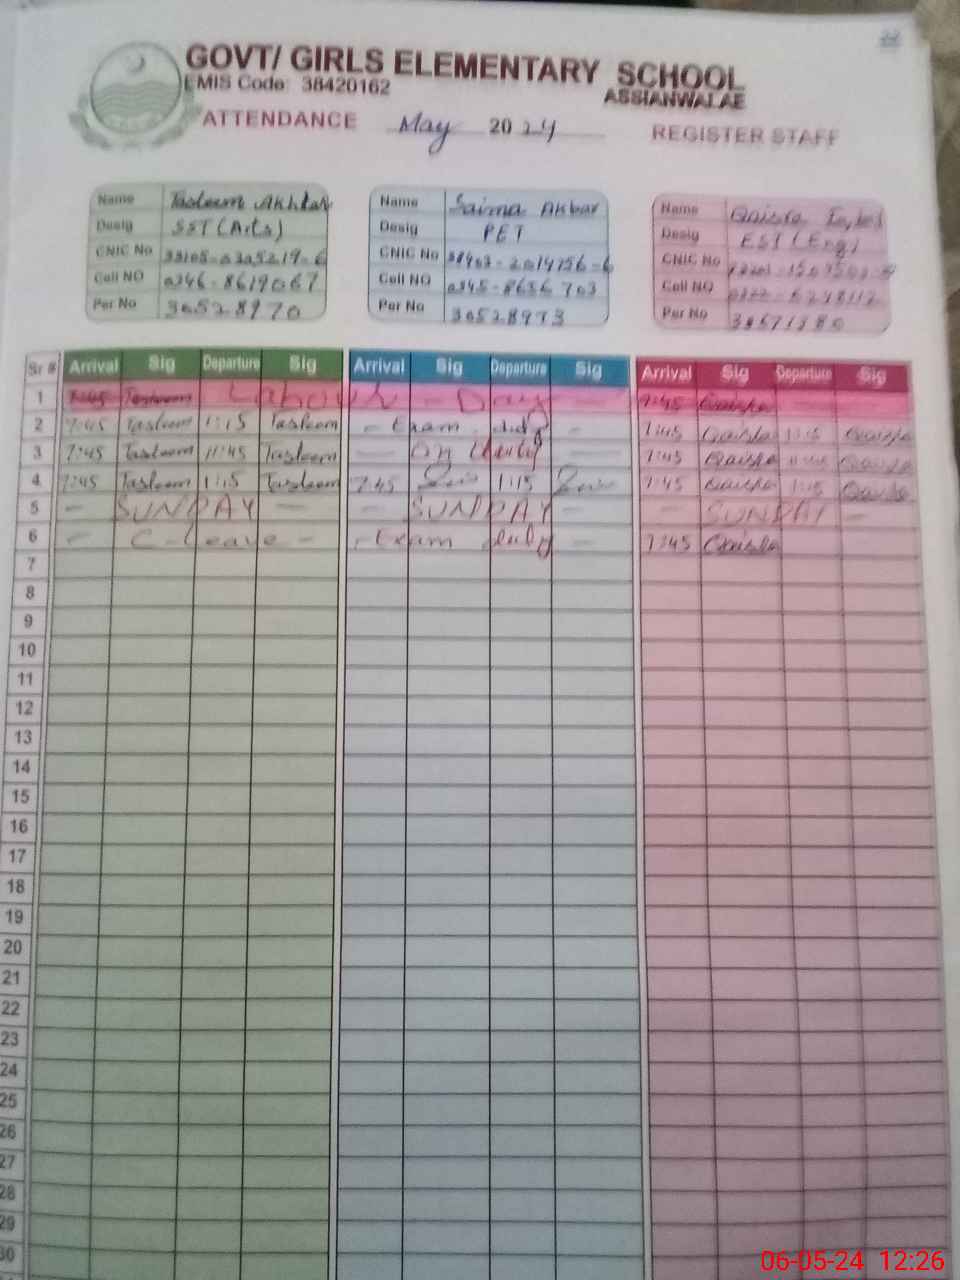 GOVT/ GIRLS ELEMENTARY SCHOOL
EMIS Code: 38420162
ASSIANWALAE
ATTENDANCE May 2024 REGISTER STAFF
Name Tasleem Akhtar
Desig SST (Arts)
CNIC No
Cell NO 0346-8619067
Per No 30528970
Name Saima Akbar
Desig PET
CNIC No
Cell NO 0345-8656703
Per No 30528973
Name Qaisra
Desig EST (Eng)
CNIC No
Cell NO
Per No
Sr # Arrival Sig Departure Sig Arrival Sig Departure Sig Arrival Sig Departure Sig
1 7:45 Tasleem Labour - Day 7:45 Qaisra
2 7:45 Tasleem 1:15 Tasleem - Exam duty - 7:45 Qaisra 1:15 Qaisra
3 7:45 Tasleem 11:45 Tasleem - On - 7:45 Qaisra Qaisra
4 7:45 Tasleem 1:15 Tasleem 7:45 1:15 7:45 Qaisra 1:15 Qaisra
5 - SUNDAY - - SUNDAY - - SUNDAY -
6 - C-Leave - - Exam duty - 7:45 Qaisra
7
8
9
10
11
12
13
14
15
16
17
18
19
20
21
22
23
24
25
26
27
28
29
30
06-05-24 12:26